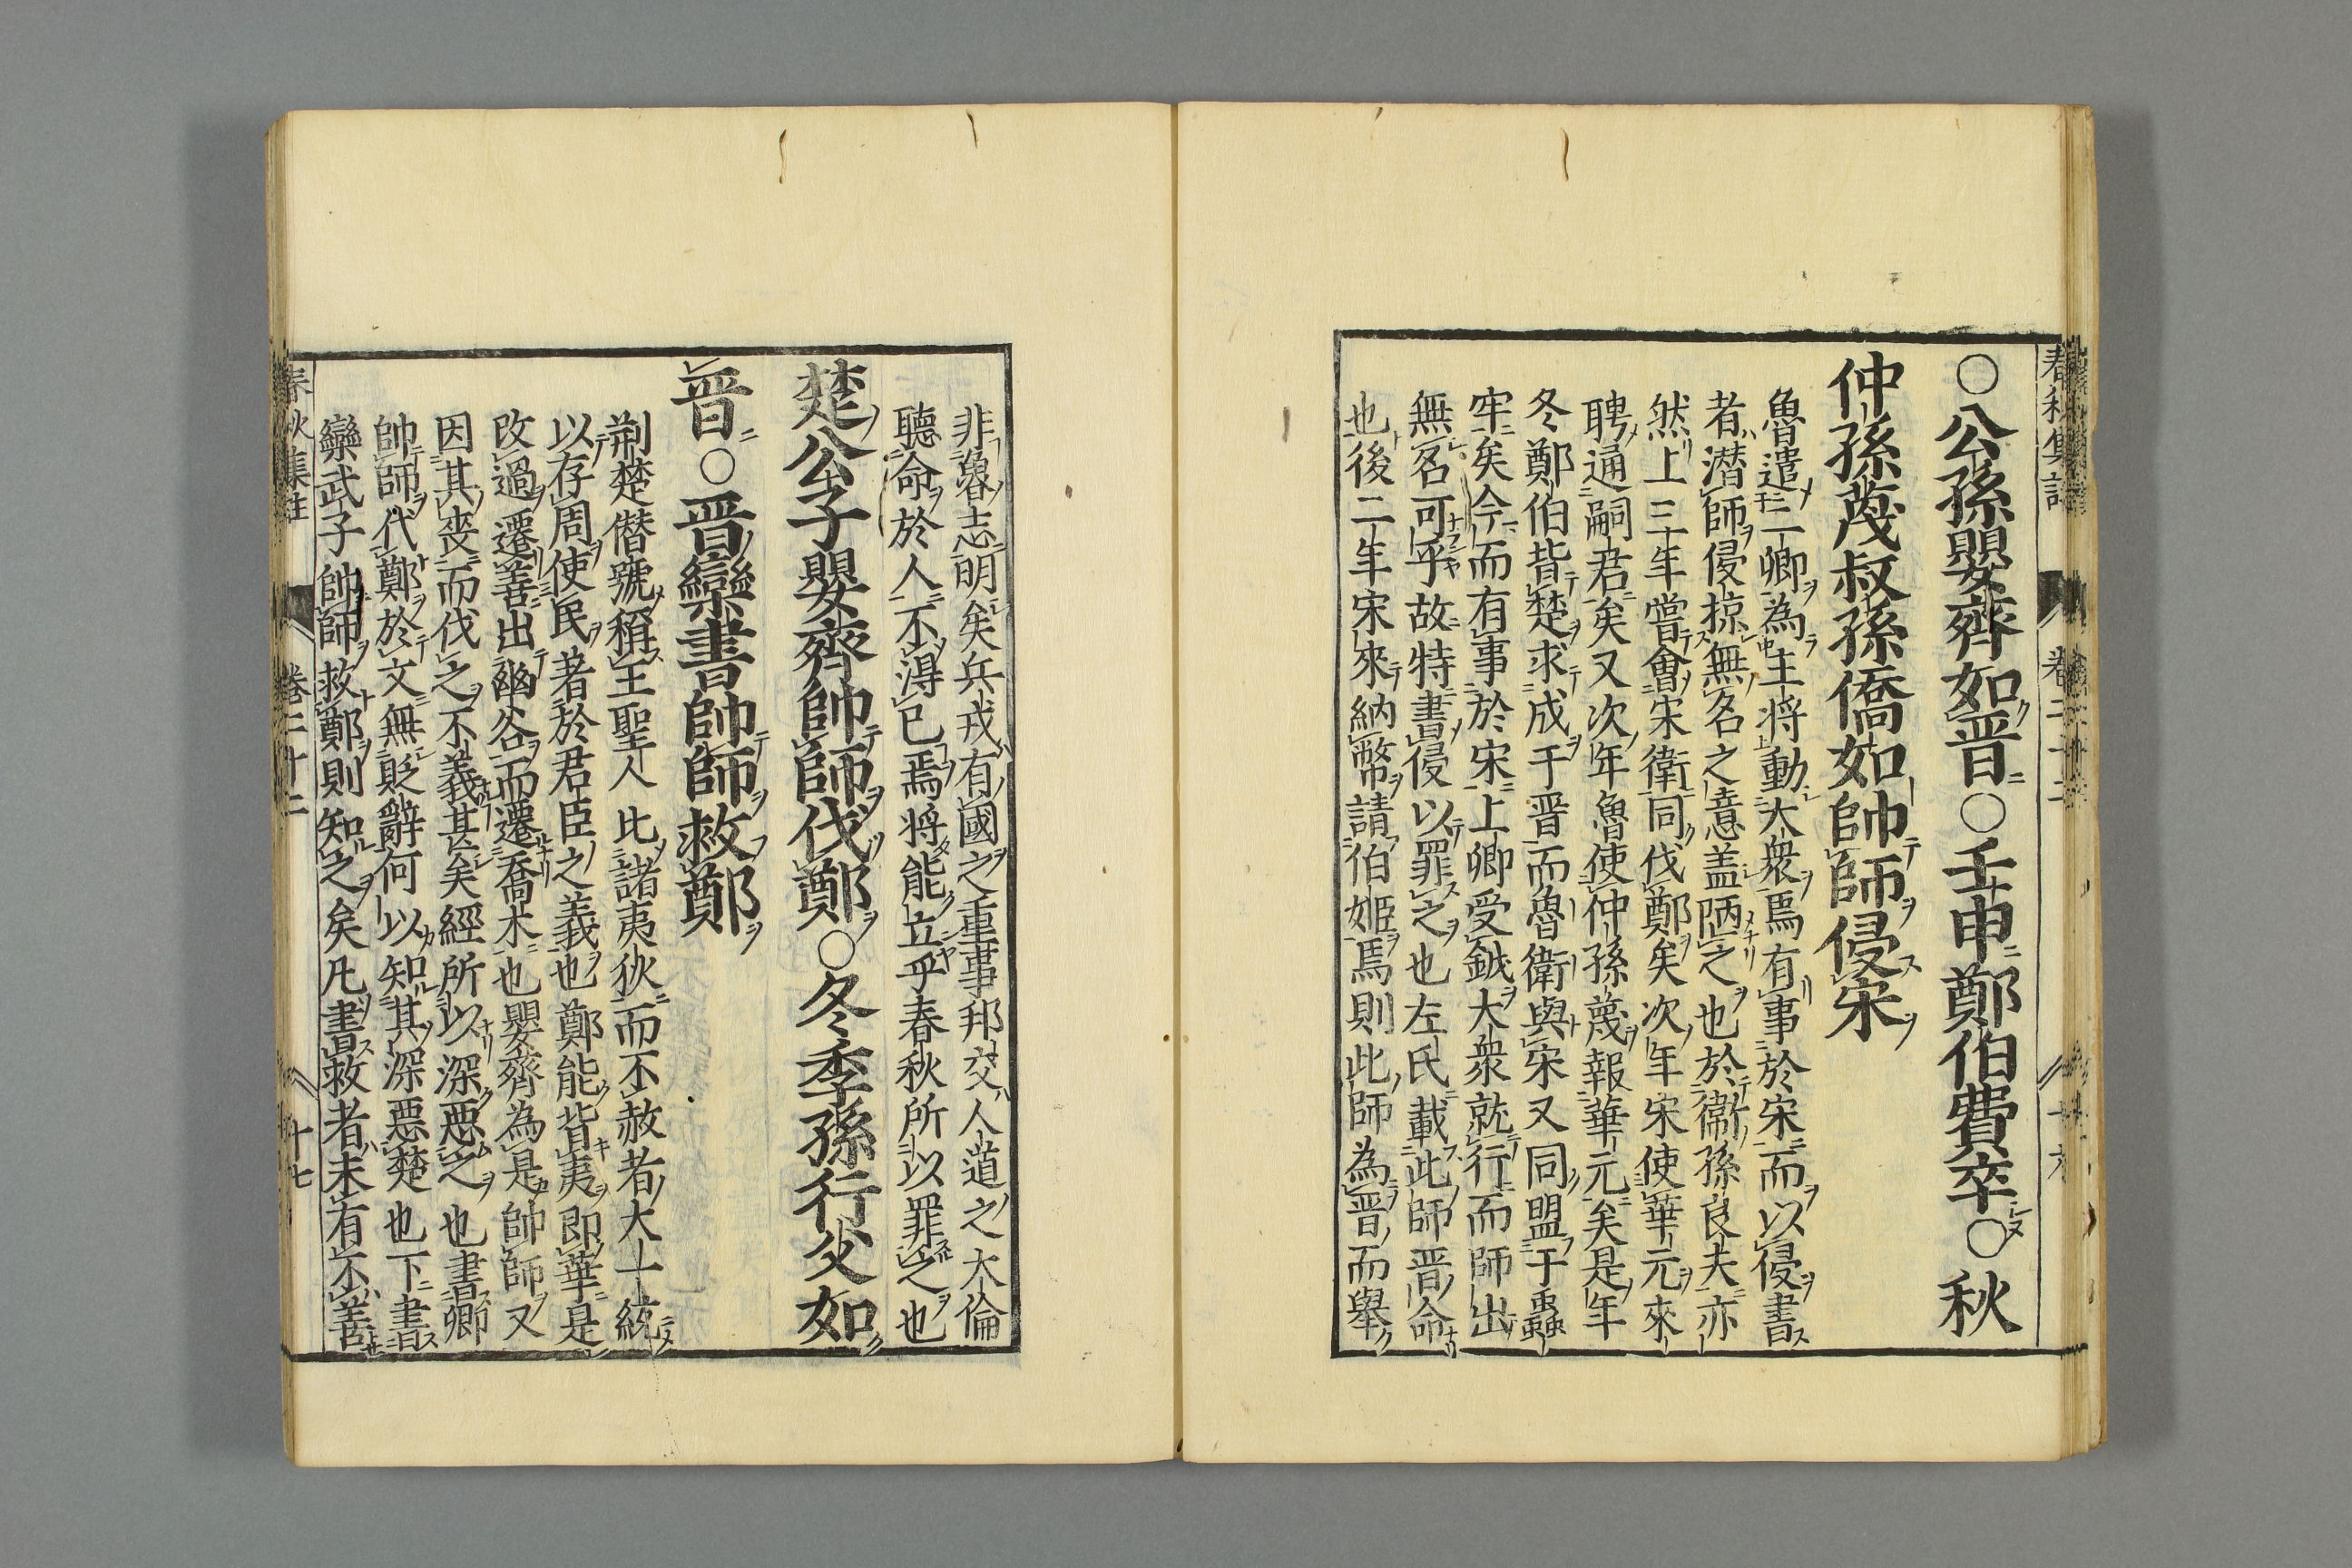 ○公孫嬰齊如晋○壬申鄭伯費卒○秋
仲孫蔑叔孫僑如帥師侵宋
魯遣二卿為主将動大衆焉有事於宋而以侵書
者潜師侵掠無名之意盖陋之也於衞孫良夫亦
然上三年嘗會宋衛同伐鄭矣次年宋使華元來
聘通嗣君矣又次年魯使仲孫蔑報華元矣是年
冬鄭伯背楚求成于晋而魯衛與宋又同盟于蟲
牢矣今而有事於宋上卿受鉞大衆就行而師出
無名可乎故特書侵以罪之也左氏載此師晋命
也後二年宋來納幣請伯姬焉則此師為晋而舉
非魯志明矣兵戎有國之重事邦交人道之大倫
聽命於人不得已焉将能立乎春秋所以罪之也
楚公子嬰齊帥師伐鄭○冬季孫行父如
晋○晋欒書帥師救鄭
荆楚僣號稱王聖人比諸夷狄而不赦者大一統
以存周使民著於君臣之義也鄭能背夷即華是
改過遷善出幽谷而遷喬木也嬰齊為是帥師又
因其喪而伐之不義甚矣經所以深惡之也書卿
帥師伐鄭於文無貶辭何以知其深惡楚也下書
欒武子帥師救鄭則知之矣凡書救者未有不善
春秋集註 卷二十二 十七